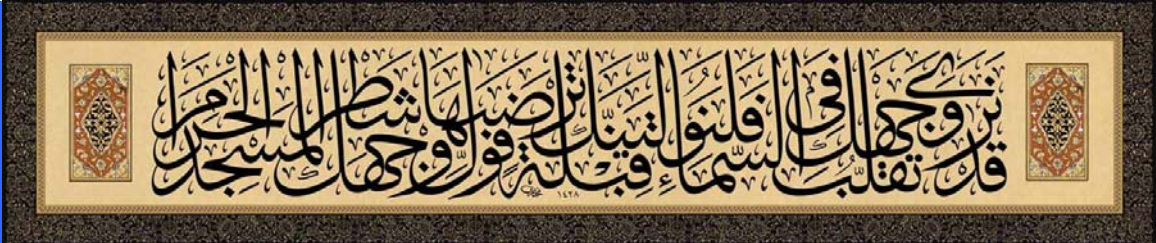 قد نرى تقلّب وجهك فى السّماء فلنولّينّك قبلة ترضيها فولّ وجهك شطر المسجد الحرام
١٤٢٨